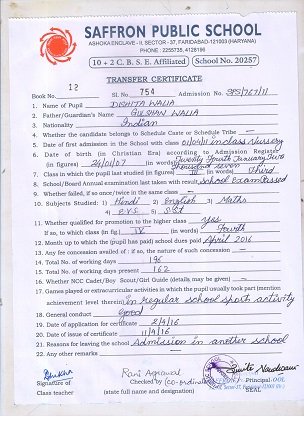 SAFFRON PUBLIC SCHOOL
ASHOKA ENCLAVE - II, SECTOR - 37, FARIDABAD-121003 (HARYANA)
PHONE : 2255735, 4128196
10 + 2 C. B. S. E. Affiliated School No. 20257
TRANSFER CERTIFICATE
Book No. 12 Sl. No. 754 Admission No. SPS/767/11
1. Name of Pupil DISHITA WALIA
2. Father/Guardian's Name GULSHAN WALIA
3. Nationality Indian
4. Whether the candidate belongs to Schedule Caste or Schedule Tribe —
5. Date of first admission in the School with class 01/04/11 in class Nursery
6. Date of birth (in Christian Era) according to Admission Register
(in figures) 24/01/07 (in words) Twenty Fourth January Two Thousand seven
7. Class in which the pupil last studied (in figures) III (in words) Third
8. School/Board Annual examination last taken with result School Exam Passed
9. Whether failed, if so once/twice in the same class —
10. Subjects Studied : 1) Hindi 2) English 3) Maths
4) E.V.S 5) S.St
11. Whether qualified for promotion to the higher class Yes
If so, to which class (in fig) IV (in words) Fourth
12. Month up to which the (pupil has paid) school dues paid April 2016
13. Any fee concession availed of : if so, the nature of such concession —
14. Total No. of working days 196
15. Total No. of working days present 162
16. Whether NCC Cadet/Boy Scout/Girl Guide (details may be given) —
17. Games played or extracurricular activities in which the pupil usually took part (mention
achievement level therein) in regular school sports activity
18. General conduct Good
19. Date of application for certificate 2/4/16
20. Date of issue of certificate 1/4/16
21. Reasons for leaving the school Admission in another school
22. Any other remarks —
Signature of
Class teacher
Rani Agrawal
Checked by (co-ordinator)
(state full name and designation)
Principal
SEAL